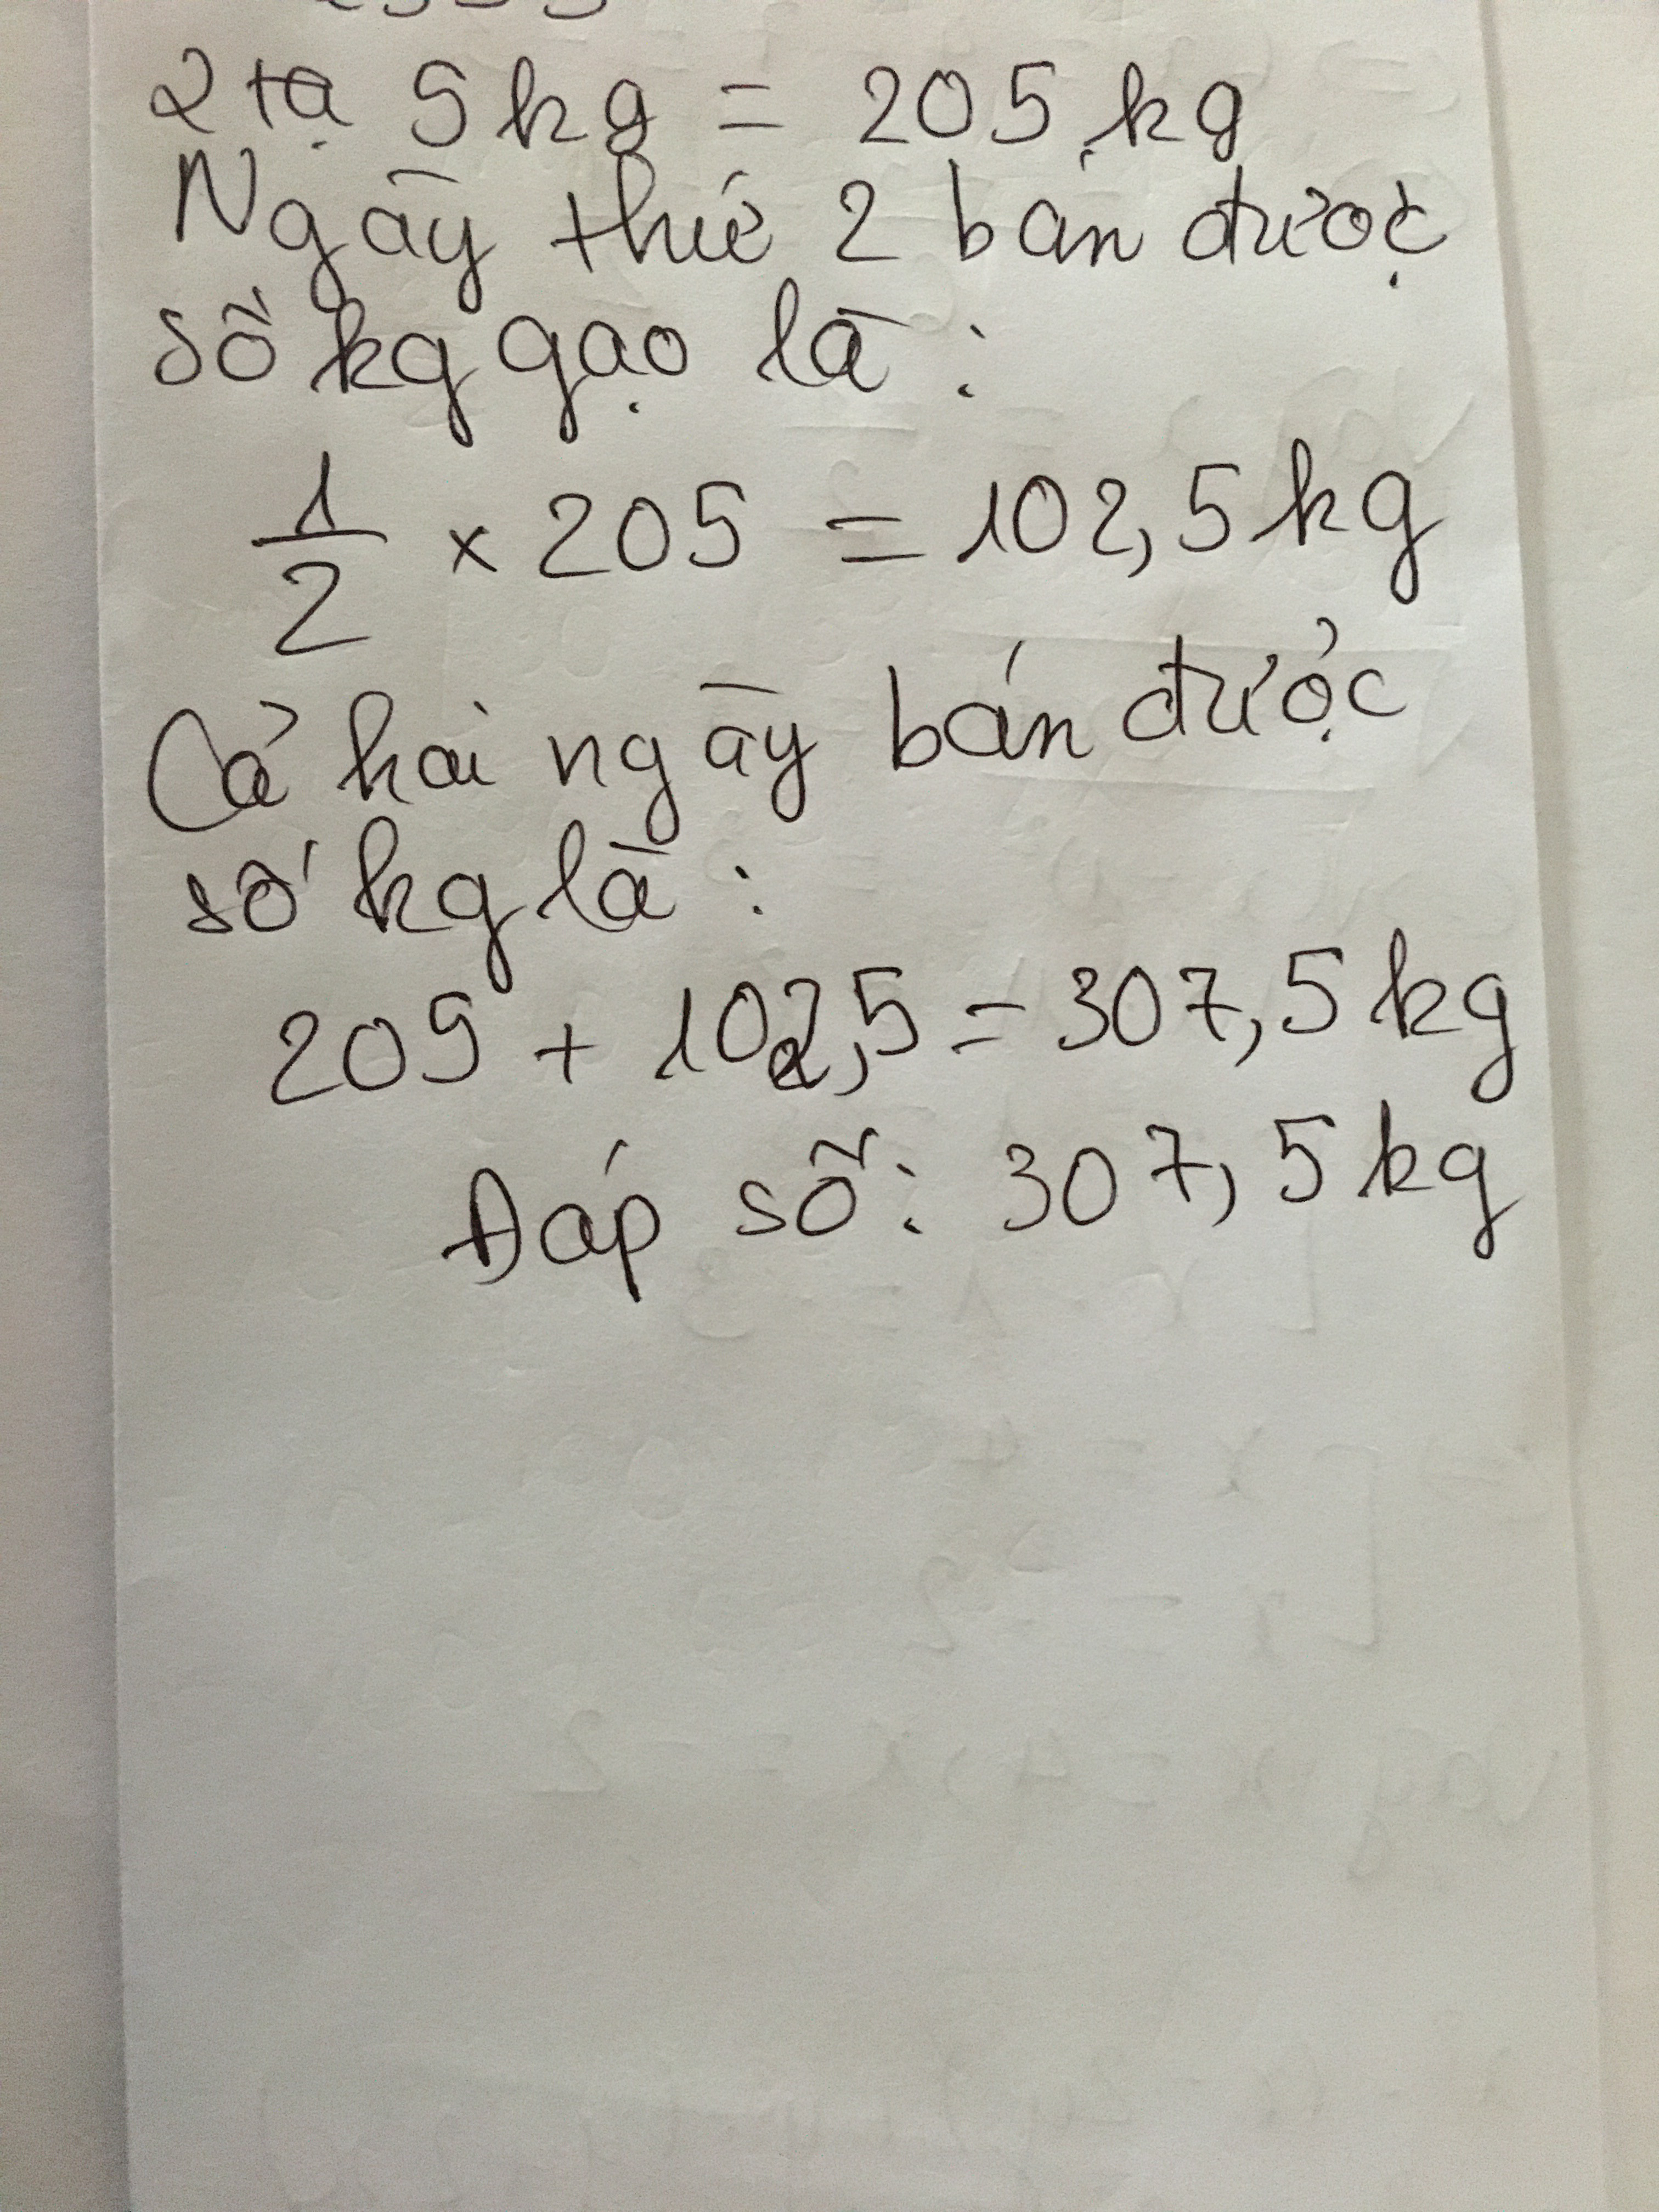 2 tạ 5 kg = 205 kg
Ngày thứ 2 bán được
số kg gạo là :
1/2 × 205 = 102,5 kg
Cả hai ngày bán được
số kg là :
205 + 102,5 = 307,5 kg
Đáp số : 307,5 kg